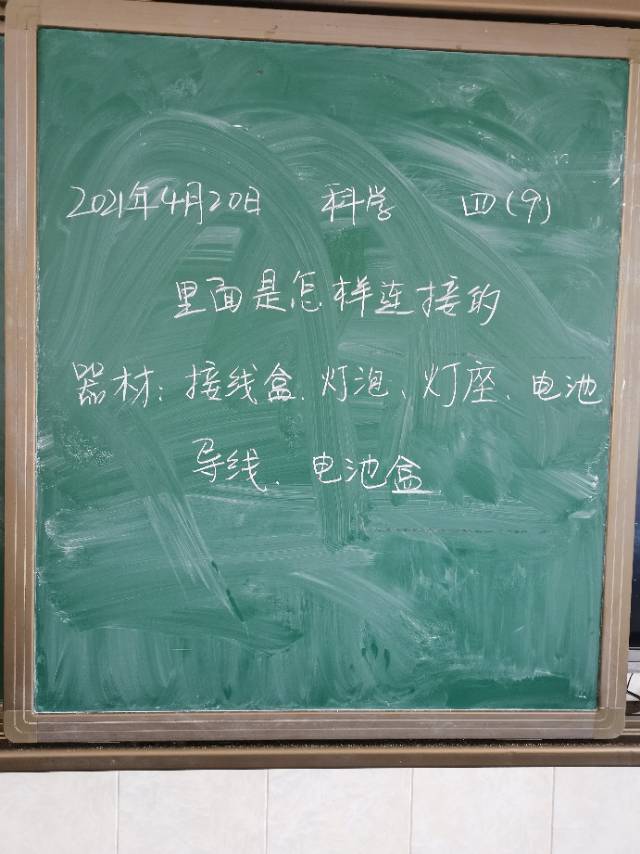 2021年4月20日 科学 四(9)
里面是怎样连接的
器材：接线盒、灯泡、灯座、电池
导线、电池盒